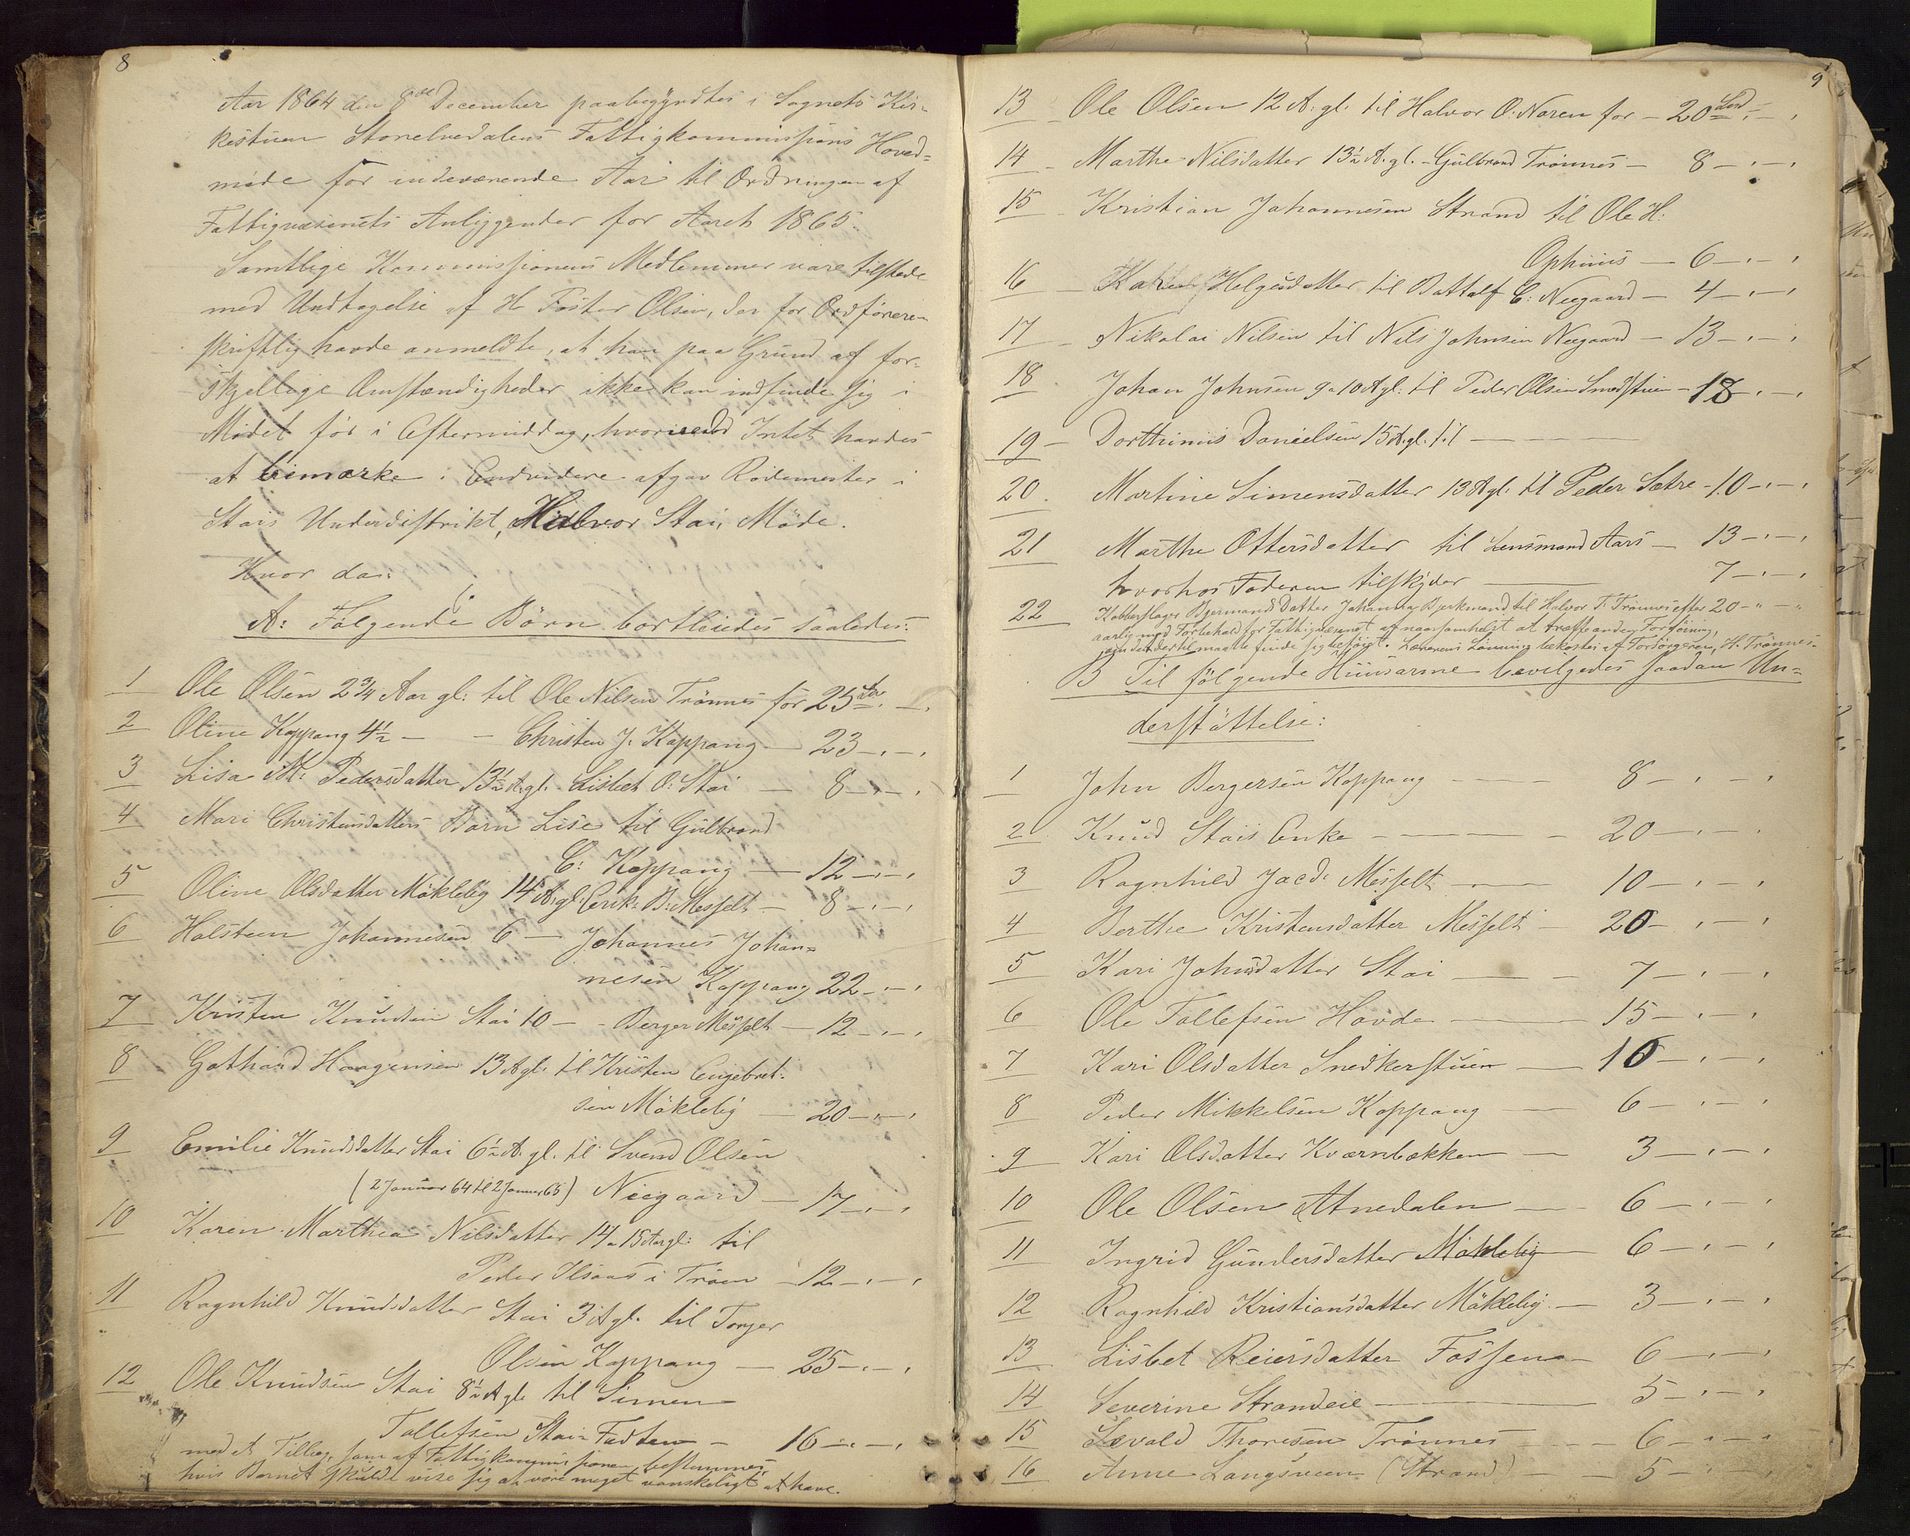 8
Aar 1864 den 8de December paabegyndtes i Sognets Kir-
kestuen Storelvedalens Fattigkommissions Hoved-
møde for indeværende Aar til Ordningen af
Fattigvæsenets Anliggender for Aaret 1865.
Samtlige Kommissionens Medlemmer vare tilstede
med Undtagelse af H. Pastor Olsen, der for Ordføreren
skriftlig havde anmeldte, at han paa Grund af for-
skjellige Omstændigheder ikke kan indfinde sig i
Mødet før i Eftermiddag, hvorimod Intet havdes
at bemærke. Endvidere afgav Rodemester i
Stais Underdistrikt, Halvor Stai, Møde.
Hvor da:
A: Følgende Børn bortleiedes saaledes:
1 Ole Olsen 2 3/4 Aar gl: til Ole Nilsen Trønnes for 25
2 Oline Koppang 4 1/2 — - Christen J. Koppang — 23 -.-.
3 Lisa M: Pedersdatter 13 1/2 A.gl. Lisbet O: Stai — 8 -.-.
4 Mari Christensdatters Barn Lise til Gulbrand
C: Koppang — 12 -.-.
5 Oline Olsdatter Møklebÿ 14 A.gl. Erik B: Messelt — 8 -.-.
6 Halsteen Johannesen 6 — Johannes Johan-
nesen Koppang 22 -.-.
7 Kristen Knudsen Stai 10 — - Berger Messelt — 12 -.-.
8 Gothard Haagensen 13 A gl. til Kristen Engebret-
sen Møklebÿ — 20 -.-.
9 Emilie Knudsdatter Stai 6 1/2 A. gl. til Svend Olsen
(2 Januar 64 til 2 Januar 65) Neegaard — 17 -.-.
10 Karen Marthea Nilsdatter 14 a 15 Aar gl: til
Peder i Trøen — 12 -.-.
11 Ragnhild Knudsdatter Stai 3 A gl. til Torger
Olsen Koppang — 25 -.-.
12 Ole Knudsen Stai 8 1/2 A gl. til Simen
Tollefsen Stai — 16 -.-.
med et Tillæg, som af Fattigkommissionen bestemmes,
hvis Barnet skulde vise sig at være meget vanskeligt at have.
9
13 Ole Olsen 12 A. gl. til Halvor O. Noren for — 20 -.-.
14 - Marthe Nilsdatter 13 1/2 A. gl. - Gulbrand Trønnes — 8 -.-.
15 Kristian Johannesen Strand til Ole H:
Ophuus — 6 -.-.
16 - Karen Helgesdatter til Battolf C: Neegaard — 4 -.-.
17 - Nikolai Nilsen til Nils Johnsen Neegaard — 13 -.-.
18 Johan Johnsen 9 a 10 A gl. til Peder Olsen — 18 -.-.
19 - Dorthinius Danielsen 15 A. gl. til — — —
20. Martine Simensdatter 13 A gl. til Peder Sætre — 10 -.-.
21 Marthe Ottersdatter til Lensmand Aars — 13 -.-.
hvorhos Faderen tilskÿder — 7 -.-.
22 Kobberslager Datter Johanna Bjerkemand til Halvor T. Trønnes efter 20 -.-.
aarlig med Forbehold for Fattigvæsenet af naarsomhelst at træffe anden Forføining,
om den dertil maatte finde sig beføiet. Lærerens Lønning bekostes af Forsørgeren, H. Trønnes.
B Til følgende Huusarme bevilgedes saadan Un-
derstøttelse:
1 John Bergersen Koppang — 8 -.-.
2 Knud Stais Enke — 20 -.-.
3 Ragnhild Jacd: Messelt — 10 -.-.
4 Berthe Kristensdatter Messelt — 20 -.-.
5 Kari Johnsdatter Stai — 7 -.-.
6 Ole Tollefsen Hovde — 15 -.-.
7 Kari Olsdatter Snedkerstuen — 10 -.-.
8 Peder Mikkelsen Koppang — 6 -.-.
9 Kari Olsdatter Kværnbækken — 3 -.-.
10 Ole Olsen Atnedalen — 6 -.-.
11 Ingrid Gundersdatter Møklebÿ — 6 -.-.
12 Ragnhild Kristiansdatter Møklebÿ — 3 -.-.
13 Lisbet Reiersdatter Fossen — 6 -.-.
14 Severine Strandeie — 5 -.-.
15 Sævald Thoresen Trønnes — 6 -.-.
16 Anne Langsveen (Strand) — 5 -.-.